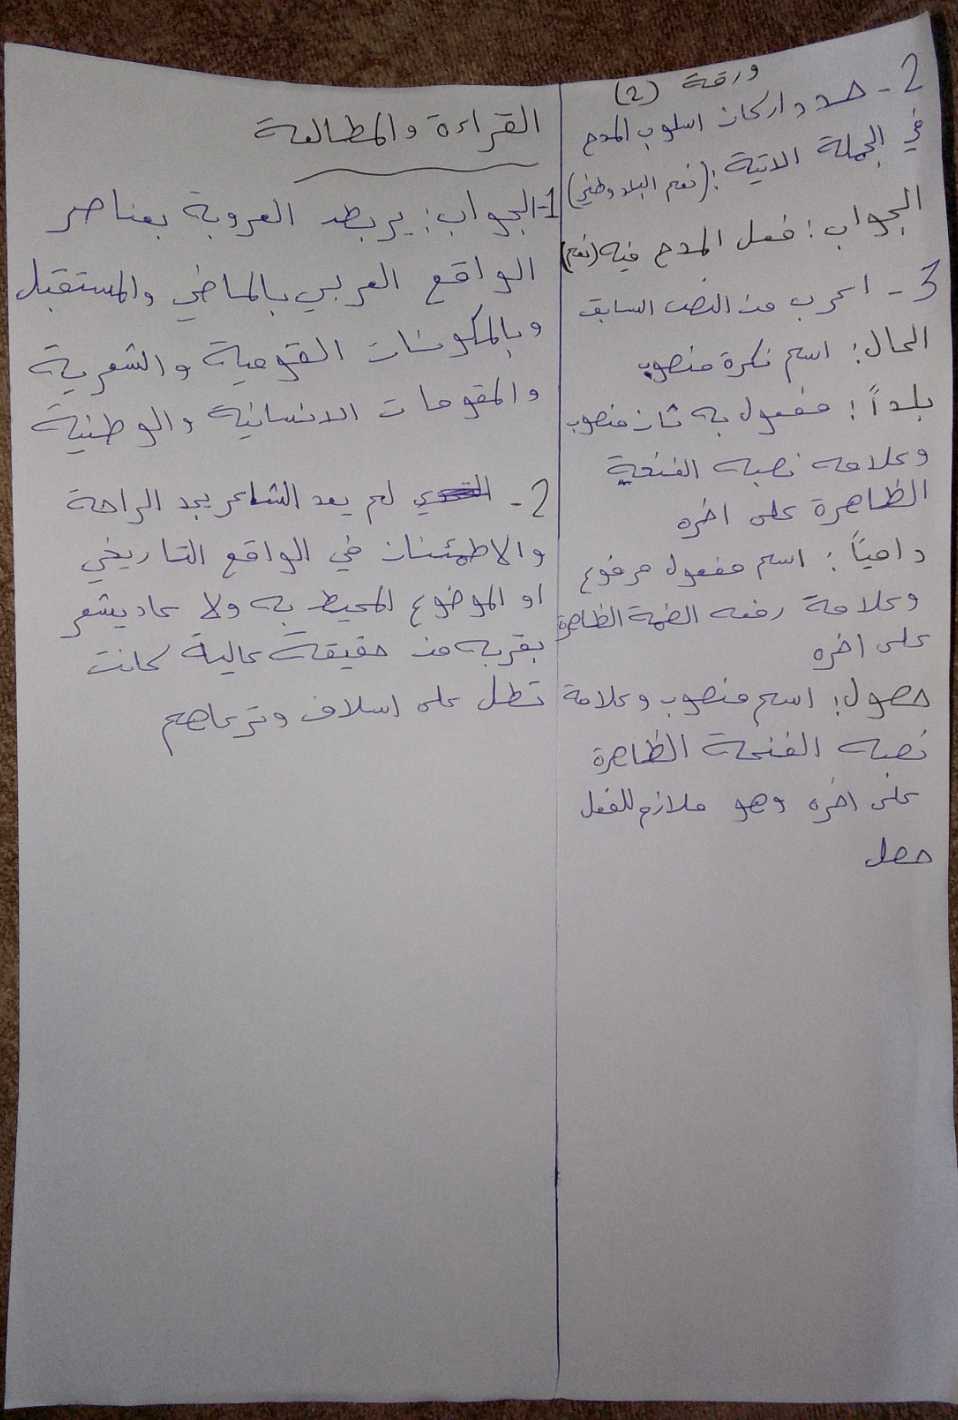 ورقة (2)
2- حدد اركان اسلوب المدح
في الجملة الاتية: (نعم البلد وطني)
الجواب: فعل المدح فيه (نعم)
3- اعرب من النص السابق
الحال: اسم نكرة منصوب
بلداً: مفعول به ثان منصوب
وعلامه نصبه الفتحة
الظاهرة على اخره
داميًا: اسم مفعول مرفوع
وعلامة رفعه الضمة الظاهرة
على اخره
حصول: اسم منصوب وعلامة
نصبه الفتحة الظاهرة
على اخره وهو ملازم للفعل
حصل
القراءة والمطالعة
1- الجواب: يربط العروبة بعناصر
الواقع العربي بالماضي والمستقبل
وبالمكونات القومية والشعرية
والمقومات الانسانية والوطنية
2- لم يعد الشاعر يجد الراحة
والاطمئنان في الواقع التاريخي
او الموضوع المحيط به ولا عاد يشعر
بقربه من حقيقة عالية كانت
تطل على اسلاف وترعاهم